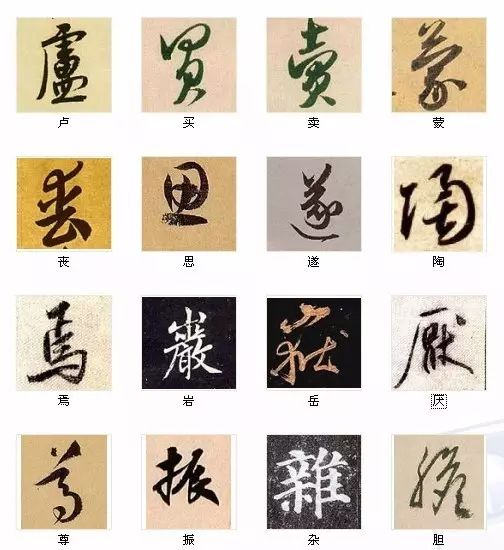 盧 買 賣 蒙
卢 买 卖 蒙
喪 思 遂 陶
丧 思 遂 陶
焉 巖 嶽 厭
焉 岩 岳 厌
尊 振 雜 膽
尊 振 杂 胆